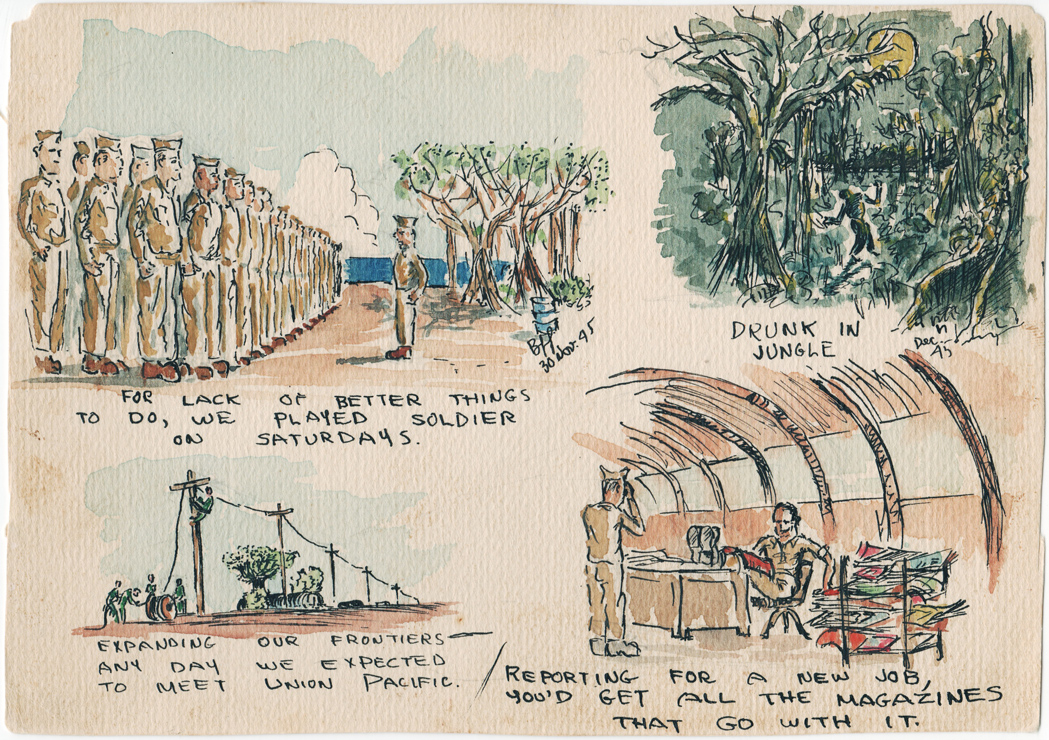 30 Nov. 45
FOR LACK OF BETTER THINGS
TO DO, WE PLAYED SOLDIER
ON SATURDAYS.
Dec.
45
DRUNK IN
JUNGLE
EXPANDING OUR FRONTIERS—
ANY DAY WE EXPECTED
TO MEET UNION PACIFIC.
REPORTING FOR A NEW JOB,
YOU'D GET ALL THE MAGAZINES
THAT GO WITH IT.